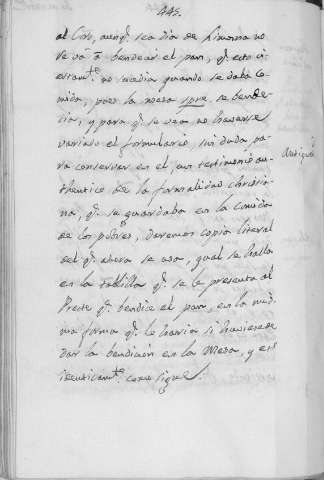 443.
al Coro, aunq.e sea dia de Limosna no
se va à bendecir el pan, q.e esto ci-
ertam.te no sucedia quando se daba co-
mida, pues la mesa spre. se bende-
cia, y para q.e se vea no haverse
variado el formulario sin duda, pa-
ra conservar en el, un testimonio au-
thentico de la formalidad christia-
na, q.e se guardaba en la comida
de los pobres, daremos copia literal
del q.e ahora se usa, qual se halla
en la tablilla q.e se le presenta al
Preste q.e bendice el pan, en la mis-
ma forma q.e lo haria si huviese de
dar la bendicion en la Mesa, y es
identicam.te como sigue.